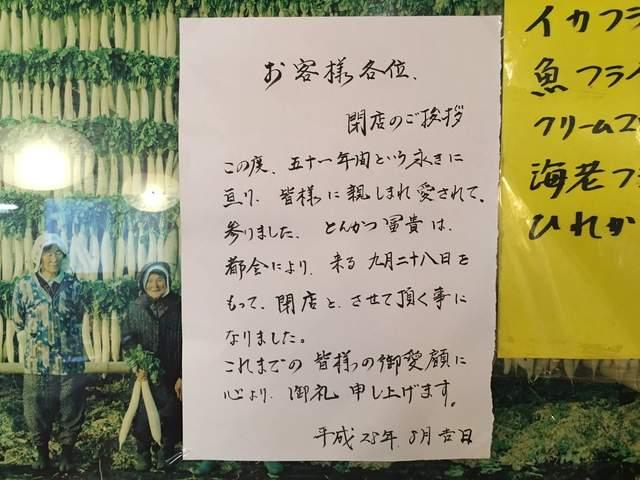 お客様各位、
閉店のご挨拶
この度、五十一年間という永きに
亘り、皆様に親しまれ愛されて、
参りました、とんかつ冨貴は、
都合により、来る九月二十八日を
もって、閉店と、させて頂く事に
なりました。
これまでの皆様の御愛顧に
心より、御礼申し上げます。
平成28年、8月吉日
イカフラ
魚フライ
クリームコ
海老フラ
ひれか